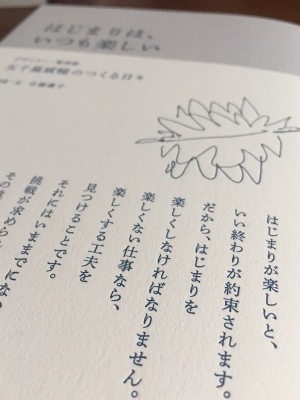 はじまりは、
いつも楽しい
デザイナー・
五十嵐威暢のつくる日々
はじまりが楽しいと、
いい終わりが約束されます。
だから、はじまりを
楽しくしなければなりません。
楽しくない仕事なら、
楽しくする工夫を
見つけることです。
それにはいままでにない
挑戦が求められ